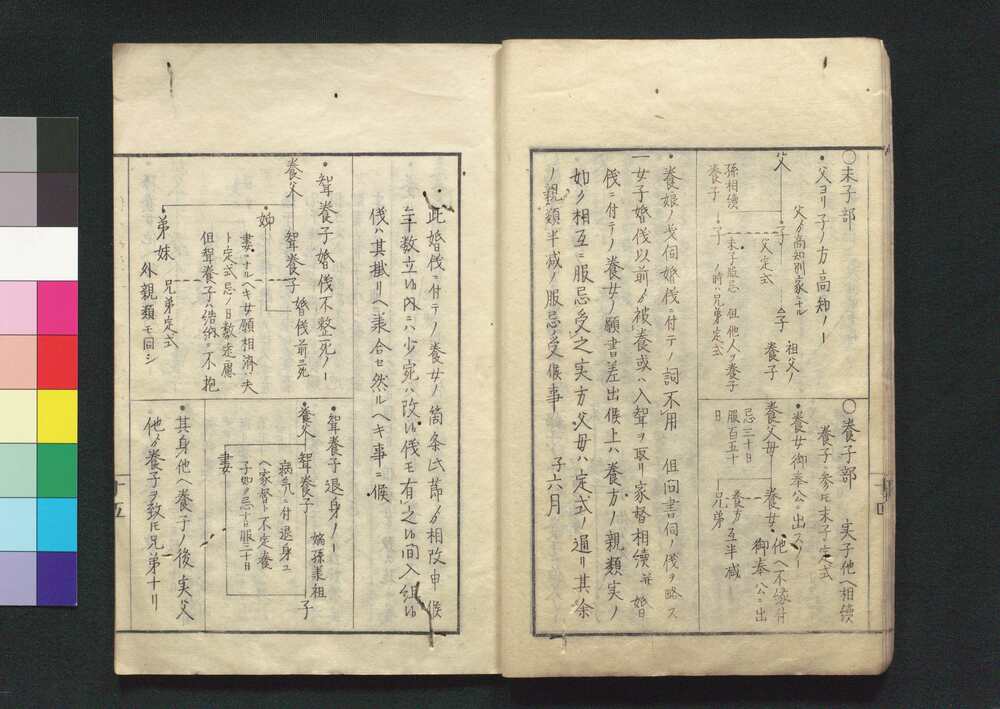 ○末子部
・父ヨリ子ノ方高知ノ一
父
父ゟ高知別家ニナル
子
父定式
孫相続
養子
子
末子服忌
但他人ヲ養子
ノ時ハ兄弟定式
子
養子
祖父ノ
○養子部
実子他ヘ相続
養子ニ参ルモ末子定式
・養女御奉公ニ出ス一
養父母
忌三十日
服百五十
日
養女
他ヘ不縁付
御奉公ニ出
養方
兄弟
互半減
・養娘ノ
伺婚儀ニ付テノ詞不用
但同書伺ノ儀ヲ略ス
一女子婚儀以前ゟ被養或ハ入聟ヲ取リ家督相続并婚
儀ニ付テノ養女ノ願書差出候上ハ養方ノ親類実ノ
如ク相互ニ服忌受之実方父母ハ定式ノ通リ其余
ノ親類半減ノ服忌ノ受候事
子六月
此婚儀ニ付テノ養女ノ箇条此節ゟ相改申候
年数立候内ニハ少宛ハ改候儀モ有之候間入組候
儀ハ其掛リヘ乗合セ然ルヘキ事ニ候
・聟養子婚儀不整死ノ一
養父
聟養子
婚儀前ニ死
姉
妻ニナルヘキ女願相済ハ夫
ト定式忌ノ日数遠慮
但聟養子ハ結納ニ不抱
弟妹
兄弟定式
外親類モ同シ
・聟養子退身ノ一
養父
聟養子
嫡孫承祖
子
病気ニ付退身ユ
ヘ家督ト不定養
子如ク忌十日服三十日
妻
・其身他ヘ養子ノ後実父
他ゟ養子ヲ致モ兄弟ナリ